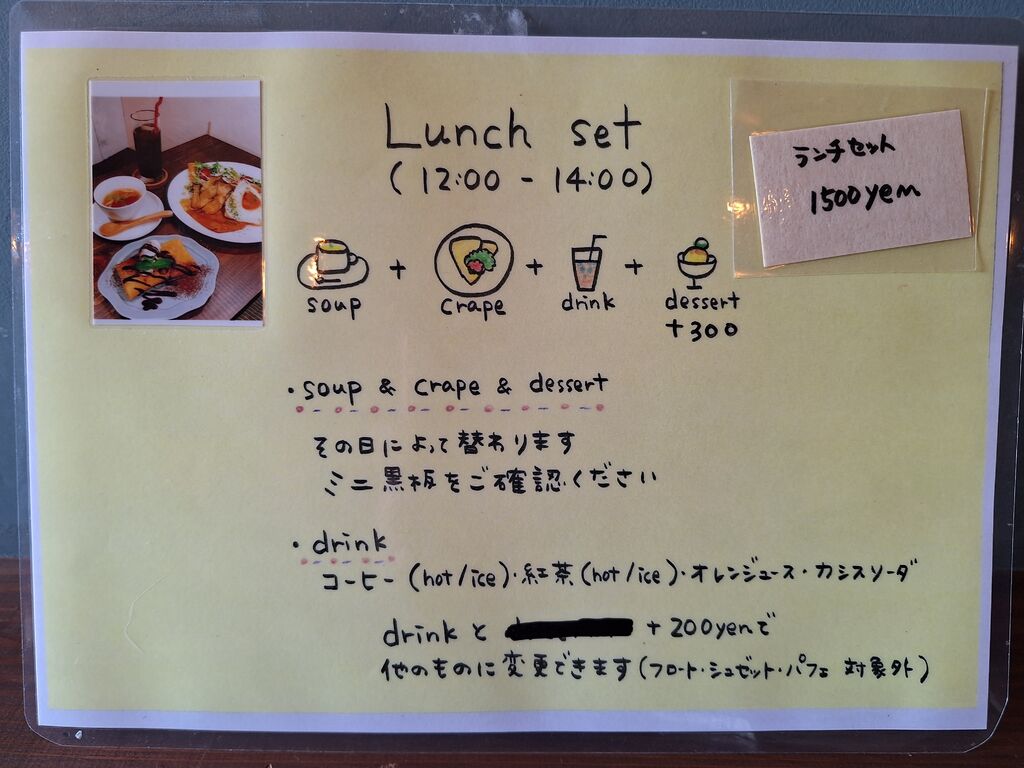 Lunch set
(12:00 - 14:00)
ランチセット
1500yen
soup + crape + drink + dessert
+300
・soup & crape & dessert
その日によって替わります
ミニ黒板をご確認ください
・drink
コーヒー (hot/ice)・紅茶 (hot/ice)・オレンジュース・カシスソーダ
drinkと +200yenで
他のものに変更できます(フロート・シュゼット・パフェ 対象外)